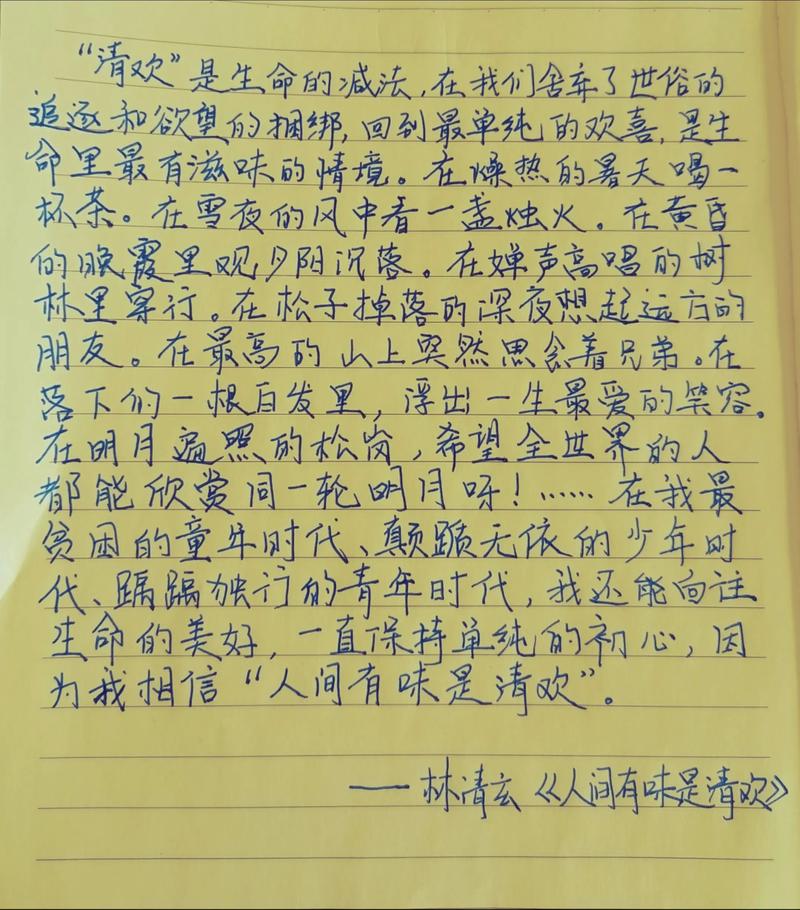 “清欢”是生命的减法,在我们舍弃了世俗的
追逐和欲望的捆绑,回到最单纯的欢喜,是生
命里最有滋味的情境。在燥热的暑天喝一
杯茶。在雪夜的风中看一盏烛火。在黄昏
的晚霞里观夕阳沉落。在蝉声高唱的树
林里穿行。在松子掉落的深夜想起远方的
朋友。在最高的山上突然思念着兄弟。在
落下们一根白发里,浮出一生最爱的笑容。
在明月遍照的松岗,希望全世界的人
都能欣赏同一轮明月呀!……在我最
贫困的童年时代、颠踬无依的少年时
代、踽踽独行的青年时代,我还能向往
生命的美好,一直保持单纯的初心,因
为我相信“人间有味是清欢”。
——林清玄《人间有味是清欢》